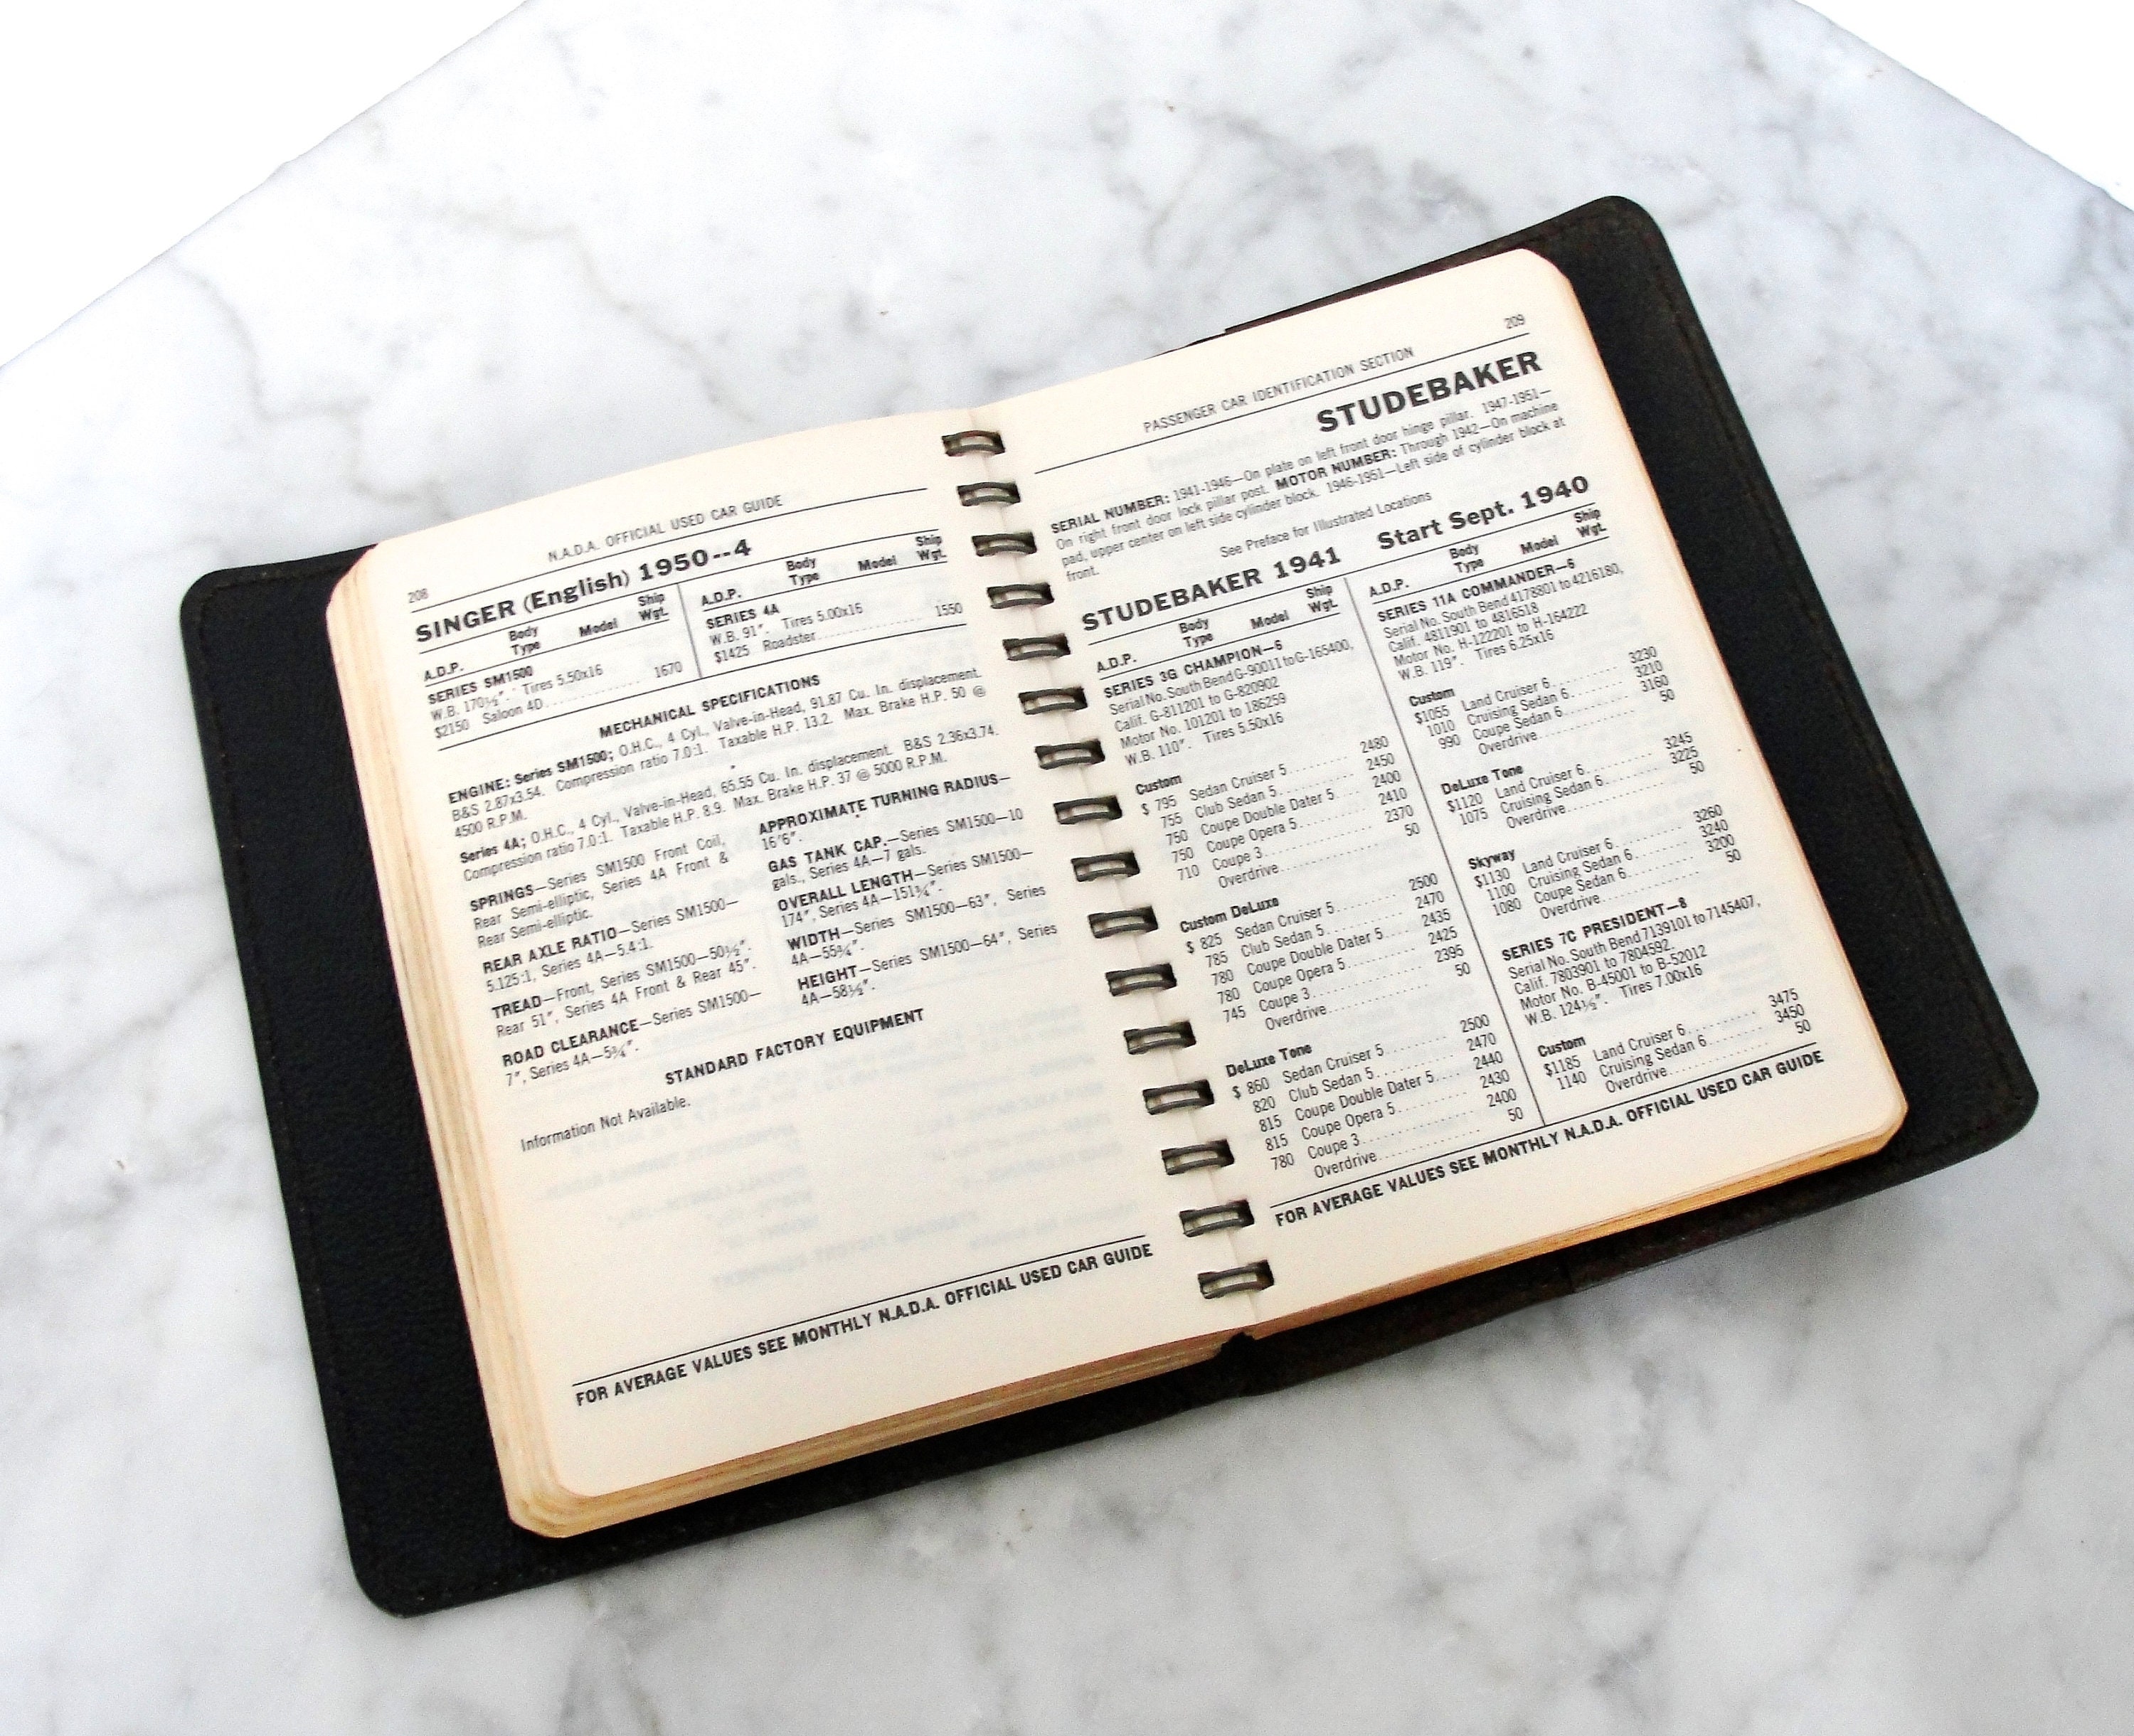 208
N.A.D.A. OFFICIAL USED CAR GUIDE
SINGER (English) 1950--4
A.D.P. Body Type Model Ship Wgt.
SERIES SM1500
W.B. 170½". Tires 5.50x16
$2150 Saloon 4D 1670
A.D.P. Body Type Model Ship Wgt.
SERIES 4A
W.B. 91". Tires 5.00x16
$1425 Roadster 1550
MECHANICAL SPECIFICATIONS
ENGINE: Series SM1500; O.H.C., 4 Cyl., Valve-in-Head, 91.87 Cu. In. displacement.
B&S 2.87x3.54. Compression ratio 7.0:1. Taxable H.P. 13.2. Max. Brake H.P. 50 @
4500 R.P.M.
Series 4A; O.H.C., 4 Cyl., Valve-in-Head, 65.55 Cu. In. displacement. B&S 2.36x3.74.
Compression ratio 7.0:1. Taxable H.P. 8.9. Max. Brake H.P. 37 @ 5000 R.P.M.
SPRINGS—Series SM1500 Front Coil,
Rear Semi-elliptic, Series 4A Front &
Rear Semi-elliptic.
REAR AXLE RATIO—Series SM1500—
5.125:1, Series 4A—5.4:1.
TREAD—Front, Series SM1500—50½".
Rear 51", Series 4A Front & Rear 45".
ROAD CLEARANCE—Series SM1500—
7", Series 4A—5¾".
APPROXIMATE TURNING RADIUS—
16'6".
GAS TANK CAP.—Series SM1500—10
gals., Series 4A—7 gals.
OVERALL LENGTH—Series SM1500—
174", Series 4A—151¾".
WIDTH—Series SM1500—63", Series
4A—55¾".
HEIGHT—Series SM1500—64", Series
4A—58½".
STANDARD FACTORY EQUIPMENT
Information Not Available.
FOR AVERAGE VALUES SEE MONTHLY N.A.D.A. OFFICIAL USED CAR GUIDE
209
PASSENGER CAR IDENTIFICATION SECTION
STUDEBAKER
SERIAL NUMBER: 1941-1946—On plate on left front door hinge pillar. 1947-1951—
On right front door lock pillar post. MOTOR NUMBER: Through 1942—On machine
pad, upper center on left side cylinder block. 1946-1951—Left side of cylinder block at
front.
See Preface for Illustrated Locations
STUDEBAKER 1941 Start Sept. 1940
A.D.P. Body Type Model Ship Wgt.
SERIES 3G CHAMPION—6
Serial No. South Bend G-90011 to G-165400,
Calif. G-811201 to G-820902
Motor No. 101201 to 186259
W.B. 110". Tires 5.50x16
Custom
$ 795 Sedan Cruiser 5 2480
755 Club Sedan 5 2450
750 Coupe Double Dater 5 2400
750 Coupe Opera 5 2410
710 Coupe 3 2370
Overdrive 50
Custom DeLuxe
$ 825 Sedan Cruiser 5 2500
785 Club Sedan 5 2470
780 Coupe Double Dater 5 2435
780 Coupe Opera 5 2425
745 Coupe 3 2395
Overdrive 50
DeLuxe Tone
$ 860 Sedan Cruiser 5 2500
820 Club Sedan 5 2470
815 Coupe Double Dater 5 2440
815 Coupe Opera 5 2430
780 Coupe 3 2400
Overdrive 50
A.D.P. Body Type Model Ship Wgt.
SERIES 11A COMMANDER—6
Serial No. South Bend 4178801 to 4216180,
Calif. 4811901 to 4816518
Motor No. H-122201 to H-164222
W.B. 119". Tires 6.25x16
Custom
$1055 Land Cruiser 6 3230
1010 Cruising Sedan 6 3210
990 Coupe Sedan 6 3160
Overdrive 50
DeLuxe Tone
$1120 Land Cruiser 6 3245
1075 Cruising Sedan 6 3225
Overdrive 50
Skyway
$1130 Land Cruiser 6 3260
1100 Cruising Sedan 6 3240
1080 Coupe Sedan 6 3200
Overdrive 50
SERIES 7C PRESIDENT—8
Serial No. South Bend 7139101 to 7145407,
Calif. 7803901 to 7804592.
Motor No. B-45001 to B-52012
W.B. 124½". Tires 7.00x16
Custom
$1185 Land Cruiser 6 3475
1140 Cruising Sedan 6 3450
Overdrive 50
FOR AVERAGE VALUES SEE MONTHLY N.A.D.A. OFFICIAL USED CAR GUIDE